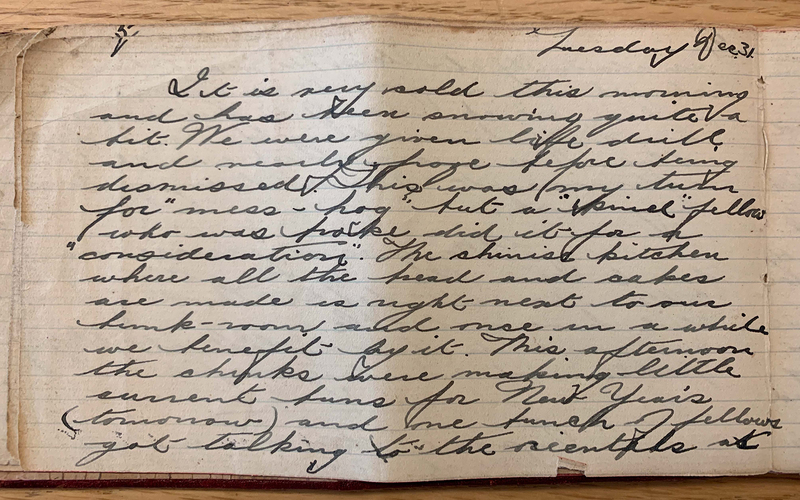 Tuesday Dec 31.
It is very cold this morning
and has been snowing quite a
bit. We were given life drill
and nearly froze before being
dismissed. This was my turn
for "mess-hog" but a "kind" fellow
who was broke did it for a
"consideration". The chinise kitchen
where all the bead and cakes
are made is right next to our
bunk-room and once in a while
we benefit by it. This afternoon
the chinks were making little
current buns for New Years
(tomorrow) and one bunch of fellows
got talking to the orientals at